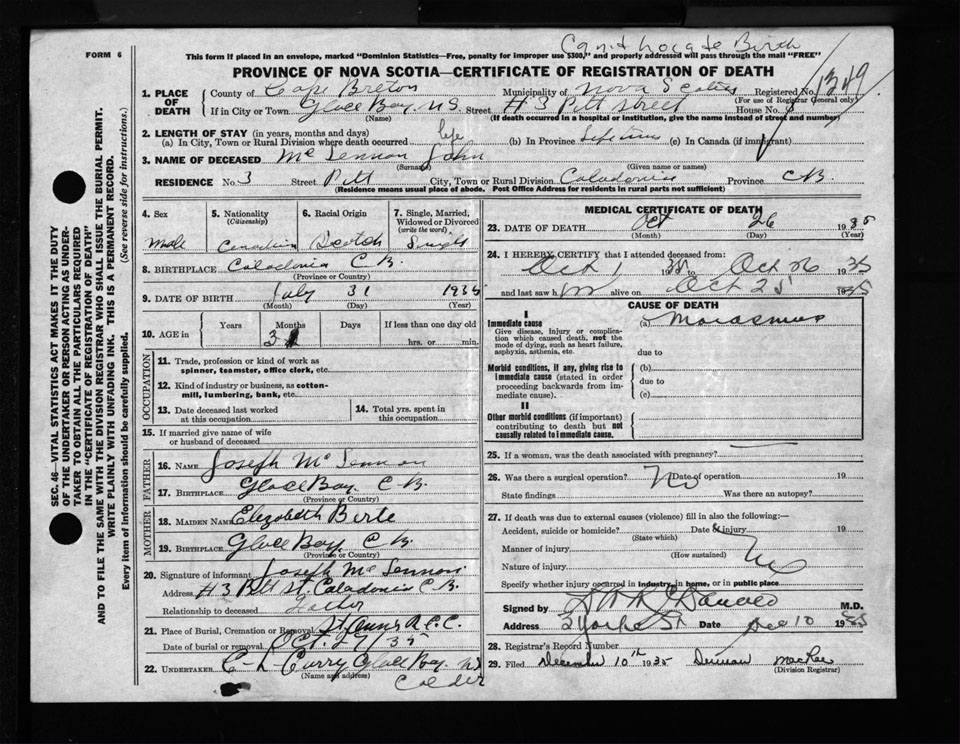 Can't Locate Birth
FORM 6
This form if placed in an envelope, marked "Dominion Statistics—Free, penalty for improper use $300," and properly addressed will pass through the mail "FREE"
PROVINCE OF NOVA SCOTIA—CERTIFICATE OF REGISTRATION OF DEATH
1. PLACE OF DEATH
County of Cape Breton Municipality of Nova Scotia Registered No. 1349
(For use of Registrar General only)
If in City or Town Glace Bay, N.S. Street # 3 Pitt Street House No.
(Name) (If death occurred in a hospital or institution, give the name instead of street and number)
2. LENGTH OF STAY (in years, months and days)
(a) In City, Town or Rural Division where death occurred life (b) In Province Life time (c) In Canada (if immigrant)
3. NAME OF DECEASED Mc Lennon John
(Surname) (Given name or names)
RESIDENCE No. 3 Street Pitt City, Town or Rural Division Caladonia Province C B.
(Residence means usual place of abode. Post Office Address for residents in rural parts not sufficient)
4. Sex
Male
5. Nationality
(Citizenship)
Canadian
6. Racial Origin
Scotch
7. Single, Married, Widowed or Divorced
(write the word)
Single
8. BIRTHPLACE Caladonia C B.
(Province or Country)
9. DATE OF BIRTH July 31 1935
(Month) (Day) (Year)
10. AGE in Years Months Days If less than one day old
3 hrs. or min.
OCCUPATION
11. Trade, profession or kind of work as spinner, teamster, office clerk, etc.
12. Kind of industry or business, as cotton-mill, lumbering, bank, etc.
13. Date deceased last worked at this occupation
14. Total yrs. spent in this occupation
15. If married give name of wife or husband of deceased
FATHER
16. NAME Joseph Mc Lennon
17. BIRTHPLACE Glace Bay C B.
(Province or Country)
MOTHER
18. MAIDEN NAME Elizabeth
19. BIRTHPLACE Glace Bay C B.
(Province or Country)
20. Signature of informant Joseph Mc Lennon
Address # 3 Pitt St. Caladonia C B.
Relationship to deceased Father
21. Place of Burial, Cremation or Removal St Anns R.C.C.
Date of burial or removal Oct. 27/35
22. UNDERTAKER C-L Curry Glace Bay NS
(Name and address)
MEDICAL CERTIFICATE OF DEATH
23. DATE OF DEATH Oct 26 1935
(Month) (Day) (Year)
24. I HEREBY CERTIFY that I attended deceased from:
Oct 1 1935 to Oct 26 1935
and last saw him alive on Oct 25 1935
CAUSE OF DEATH
I
Immediate cause
Give disease, injury or complication which caused death, not the mode of dying, such as heart failure, asphyxia, asthenia, etc.
(a) Marasmus
due to
Morbid conditions, if any, giving rise to immediate cause (stated in order proceeding backwards from immediate cause).
(b)
due to
(c)
II
Other morbid conditions (if important) contributing to death but not causally related to immediate cause.
25. If a woman, was the death associated with pregnancy?
26. Was there a surgical operation? No Date of operation 19
State findings Was there an autopsy?
27. If death was due to external causes (violence) fill in also the following:—
Accident, suicide or homicide? Date of injury 19
(State which)
Manner of injury
(How sustained)
Nature of injury
Specify whether injury occurred in industry, in home, or in public place
Signed by M.D.
Address York St Date Dec 10 1935
28. Registrar's Record Number
29. Filed December 10th 1935 MacRae
(Division Registrar)
SEC. 46—VITAL STATISTICS ACT MAKES IT THE DUTY OF THE UNDERTAKER OR PERSON ACTING AS UNDERTAKER TO OBTAIN ALL THE PARTICULARS REQUIRED IN THE "CERTIFICATE OF REGISTRATION OF DEATH" AND TO FILE THE SAME WITH THE DIVISION REGISTRAR WHO SHALL ISSUE THE BURIAL PERMIT.
WRITE PLAINLY WITH UNFADING INK. THIS IS A PERMANENT RECORD.
Every item of information should be carefully supplied. (See reverse side for instructions.)